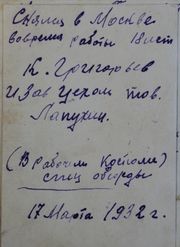 Снялися в Москве
вовремя работы 18 лет
К. Григорьев
и Зав Цехом тов.
Лапухин.
(В рабочем Костюме)
спец обежды
17 Марта 1932 г.